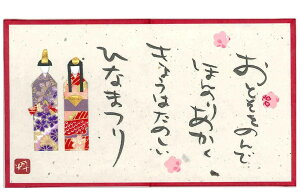 おとそをのんで
ほんのりあかく
きょうはたのしい
ひなまつり